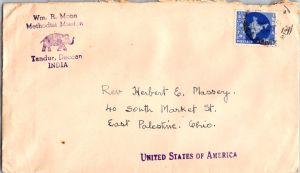 Wm. R. Moon
Methodist Mission
Tandur, Deccan
INDIA
Rev Herbert E. Massey.
40 South Market St.
East Palestine, Ohio.
UNITED STATES OF AMERICA